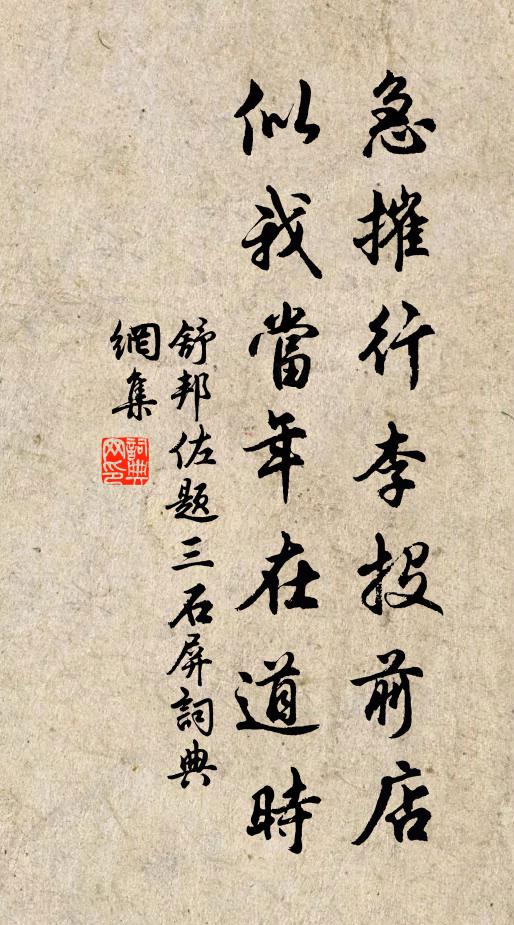 急摧行李投前店
似我當年在道時
舒邦佐題三石屏詞典
網集
詞典网印